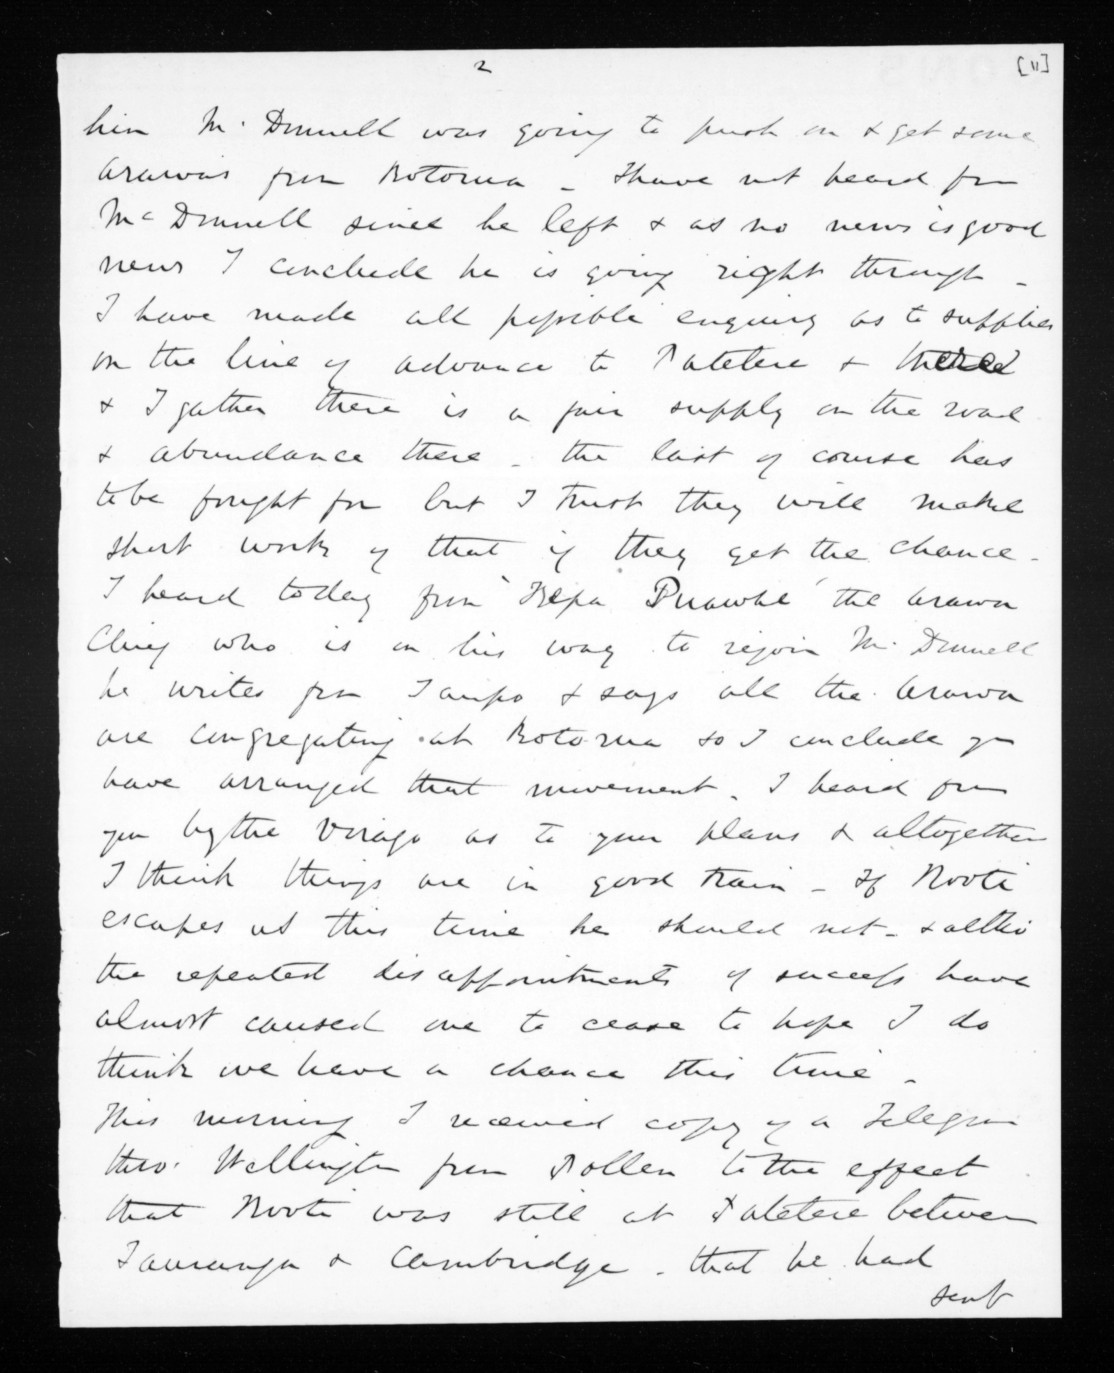 2
[11]
him Mc Donnell was going to push on & get some
Arawas from Rotorua – I have not heard from
Mc Donnell since he left & as no news is good
news I conclude he is going right through –
I have made all possible enquiry as to supplies
on the line of advance to Patetere &
& I gather there is a fair supply on the road
& abundance there – the last of course has
to be fought for but I trust they will make
short work of that if they get the chance –
I heard today from 'the Arawa
Chief who is on his way to rejoin Mc Donnell
he writes from Taupo & says all the Arawa
are congregating at Rotorua so I conclude you
have arranged that movement. I heard from
you by the Virago as to your plans & altogether
I think things are in good train – If Kooti
escapes us this time he should not – & altho'
the repeated disappointments of success have
almost caused one to cease to hope I do
think we have a chance this time –
This morning I received copy of a Telegram
thro' Wellington from Pollen to the effect
that Kooti was still at Patetere between
Tauranga & Cambridge – that he had
sent